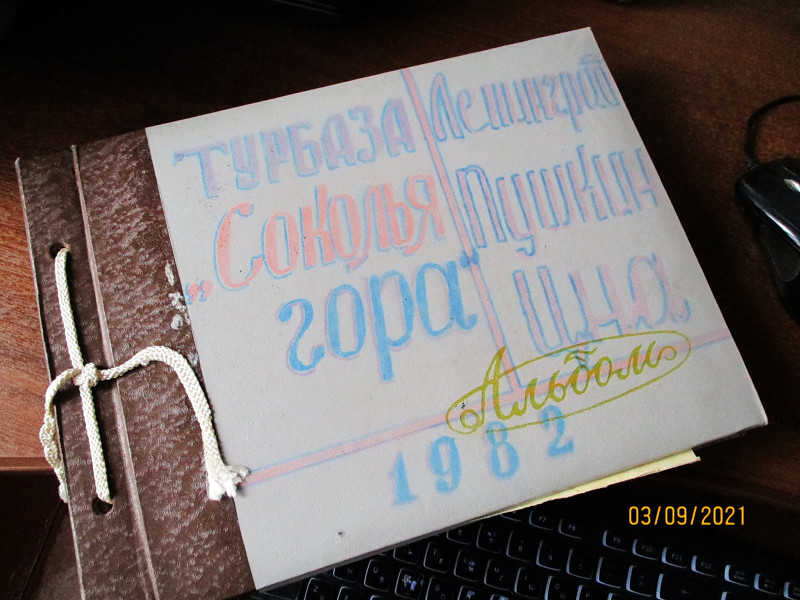 ТУРБАЗА
„Соколья
гора"
Ленинград
Пушкин
ина
Альбом
1982
03/09/2021